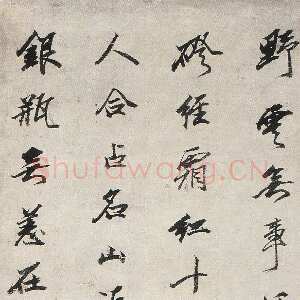 野雲無事
磴經霜紅十
人合占名山
銀瓶無恙在
Shufawang.CN